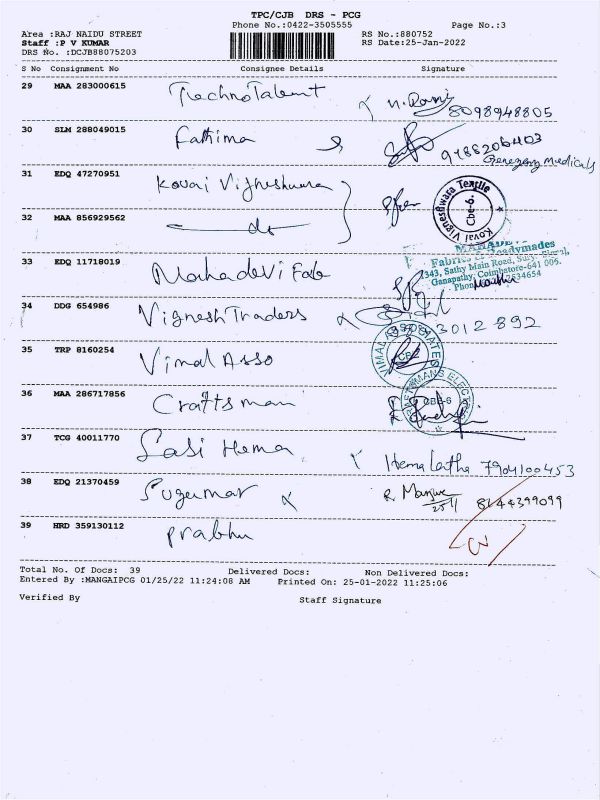 TPC/CJB DRS - PCG
Phone No.:0422-3505555 Page No.:3
Area :RAJ NAIDU STREET RS No.:880752
Staff :P V KUMAR RS Date:25-Jan-2022
DRS No. :DCJB88075203
S No Consignment No Consignee Details Signature
29 MAA 283000615 TechnoTalent 8098948805
30 SLM 288049015 Fathima 9788206403
medicals
31 EDQ 47270951 Kovai Vigneshwara
Kovai Vigneshwara Textile
Cbe-6.
32 MAA 856929562 do
MAHADEVI
Fabrics & Readymades
343, Sathy Main Road,
Ganapathy, Coimbatore-641 006.
33 EDQ 11718019 Mahadevi Fab
34 DDG 654986 Vignesh Traders 3012892
35 TRP 8160254 Vimal Asso
36 MAA 286717856 Craftsman
CBE-6
37 TCG 40011770 Sasi Hema Hemalatha 7904100453
38 EDQ 21370459 Sugumar 8144399099
39 HRD 359130112 Prabhu
Total No. Of Docs: 39 Delivered Docs: Non Delivered Docs:
Entered By :MANGAIPCG 01/25/22 11:24:08 AM Printed On: 25-01-2022 11:25:06
Verified By Staff Signature